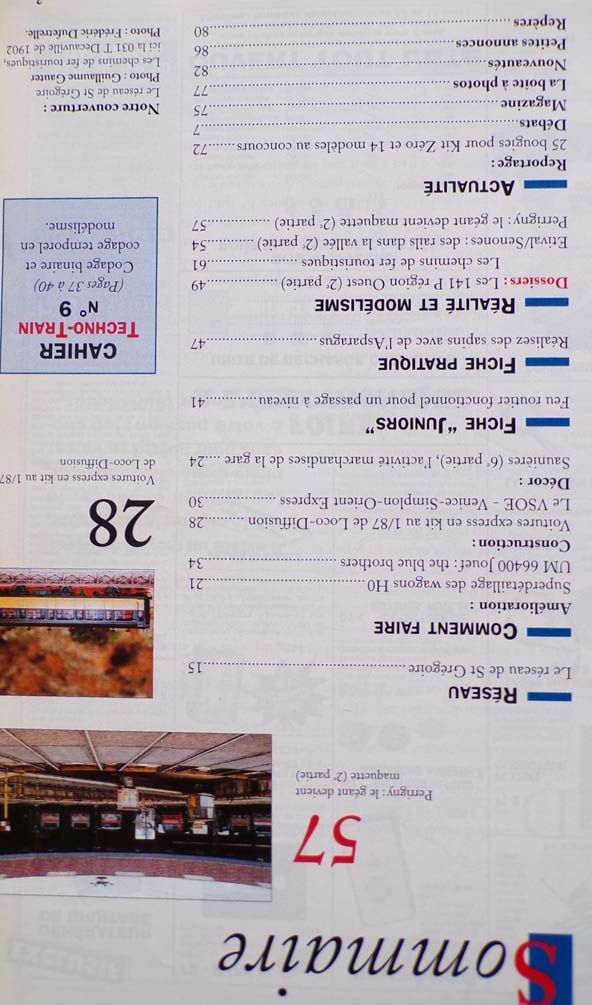 Sommaire
57
Perrigny : le géant devient
maquette (2e partie)
RÉSEAU
Le réseau de St Grégoire ..........15
COMMENT FAIRE
Amélioration :
Superdétaillage des wagons H0 ..........21
UM 66400 Jouef : the blue brothers ..........34
Construction :
Voitures express en kit au 1/87 de Loco-Diffusion ..........28
Le VSOE - Venice-Simplon-Orient Express ..........30
Décor :
Saunières (6e partie), l'activité marchandises de la gare ....24
FICHE "JUNIORS"
Feu routier fonctionnel pour un passage à niveau ..........41
FICHE PRATIQUE
Réalisez des sapins avec de l'Asparagus ..........47
RÉALITÉ ET MODÉLISME
Dossiers : Les 141 P région Ouest (2e partie) ..........49
Les chemins de fer touristiques ..........61
Etival/Senones : des rails dans la vallée (2e partie) ..........54
Perrigny : le géant devient maquette (2e partie) ..........57
ACTUALITÉ
Reportage :
25 bougies pour Kit Zéro et 14 modèles au concours .......72
Débats ..........7
Magazine ..........75
La boîte à photos ..........77
Nouveautés ..........82
Petites annonces ..........86
Repères ..........80
28
Voitures express en kit au 1/87
de Loco-Diffusion
CAHIER
TECHNO-TRAIN
N° 9
(Pages 37 à 40)
Codage binaire et
codage temporel en
modélisme.
Notre couverture :
Le réseau de St Grégoire
Photo : Guillaume Gauter
Les chemins de fer touristiques,
ici la 031 T Decauville de 1902
Photo : Frédéric Dufterelle.
3